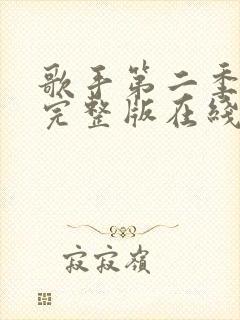 歌手第二季
完整版在线
寂寂嶺